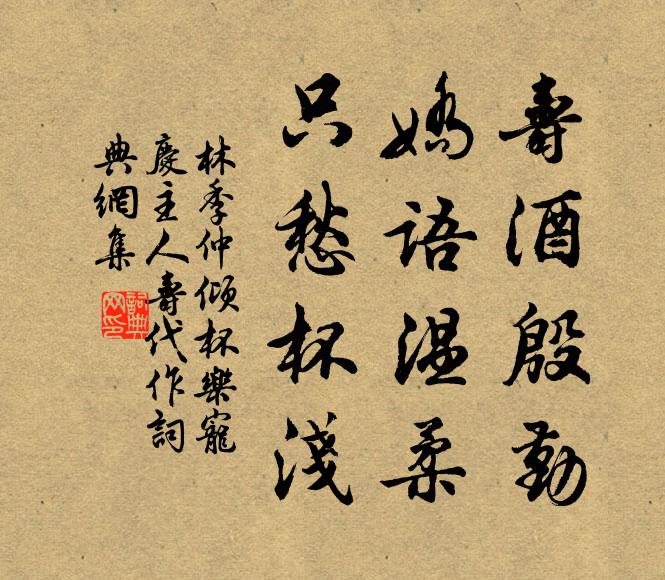 壽酒殷勤
嬌語温柔
只愁杯淺
林季仲傾杯樂寵
慶主人壽代作詞
典網集
詞典网印